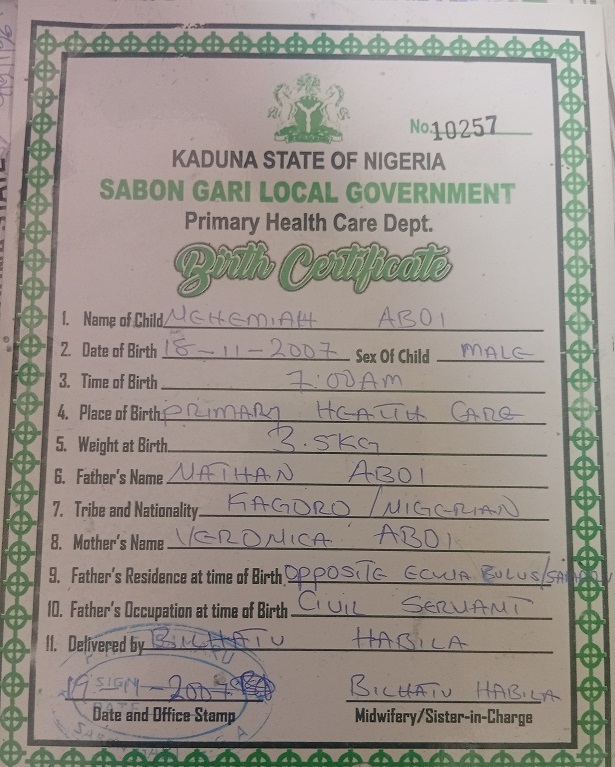 No. 10257
KADUNA STATE OF NIGERIA
SABON GARI LOCAL GOVERNMENT
Primary Health Care Dept.
Birth Certificate
1. Name of Child NEHEMIAH ABOI
2. Date of Birth 18-11-2007 Sex Of Child MALE
3. Time of Birth 7:00AM
4. Place of Birth PRIMARY HEALTH CARE
5. Weight at Birth 3.5KG
6. Father's Name NATHAN ABOI
7. Tribe and Nationality KAGORO / NIGERIAN
8. Mother's Name VERONICA ABOI
9. Father's Residence at time of Birth OPPOSITE ECWA BULUS/
10. Father's Occupation at time of Birth CIVIL SERVANT
11. Delivered by BILHATU HABILA
SIGN
DATE
19-11-2007 BILHATU HABILA
Date and Office Stamp Midwifery/Sister-in-Charge